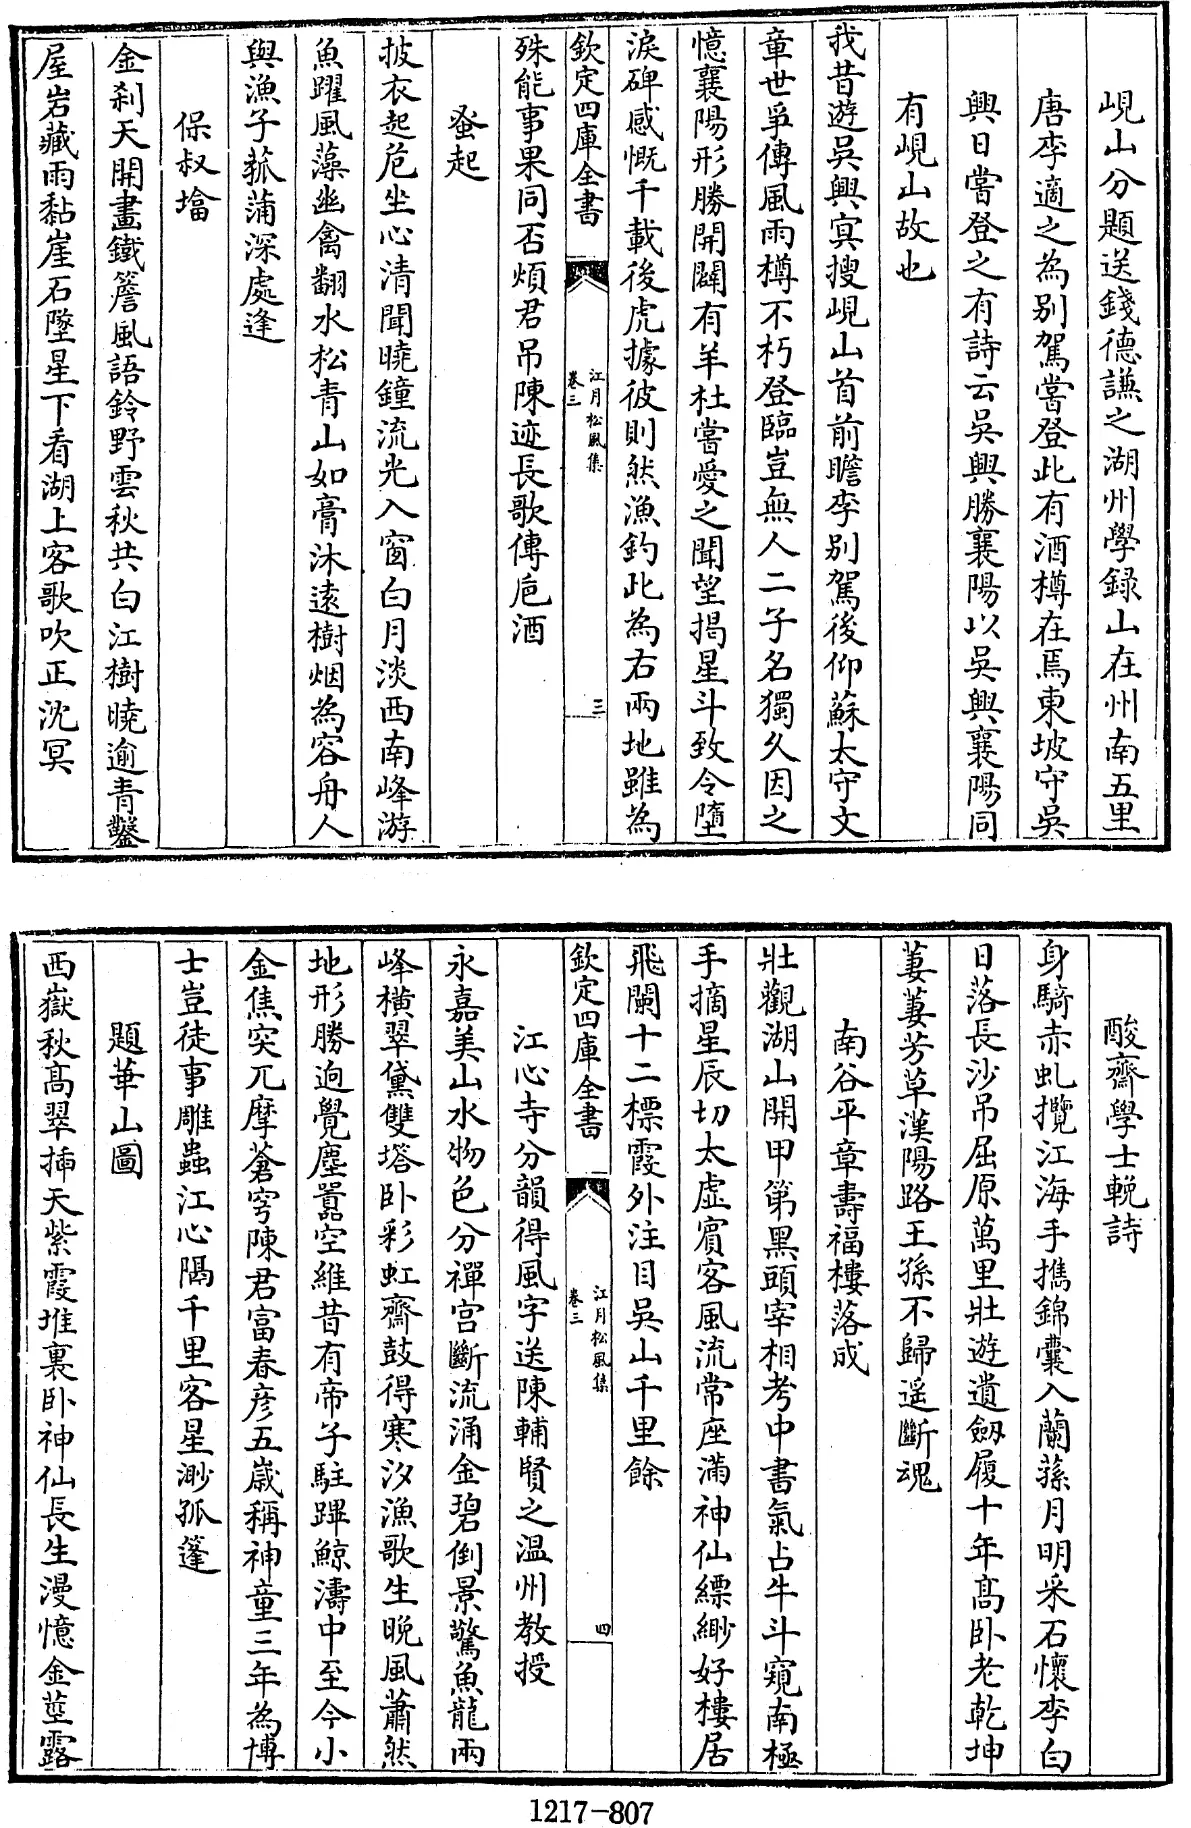 峴山分題送錢德謙之湖州學録山在州南五里
唐李適之為别駕嘗登此有酒樽在焉東坡守吳
興日嘗登之有詩云吳興勝襄陽以吳興襄陽同
有峴山故也
我昔遊吳興㝠搜峴山首前瞻李别駕後仰蘇太守文
章世爭傳風雨樽不朽登臨豈無人二子名獨久因之
憶襄陽形勝開闢有羊杜嘗愛之聞望揭星斗致令墮
淚碑感慨千載後虎據彼則然漁釣此為右兩地雖為
欽定四庫全書
江月松風集
卷三
三
殊能事果同否煩君吊陳迹長歌傳巵酒
蚤起
披衣起危坐心清聞曉鐘流光入窗白月淡西南峰游
魚躍風藻幽禽翻水松青山如膏沐遠樹烟為容舟人
與漁子菰蒲深處逢
保叔㙮
金刹天開畫鐵簷風語鈴野雲秋共白江樹曉逾青鑿
屋岩藏雨黏崖石墜星下看湖上客歌吹正沈冥
酸齋學士輓詩
身騎赤虬攬江海手攜錦囊入蘭蓀月明采石懷李白
日落長沙吊屈原萬里壯遊遺劔履十年高卧老乾坤
萋萋芳草漢陽路王孫不歸遥斷魂
南谷平章壽福樓落成
壯觀湖山開甲第黑頭宰相考中書氣占牛斗窺南極
手摘星辰切太虛賓客風流常座滿神仙縹緲好樓居
飛闌十二標霞外注目吳山千里餘
欽定四庫全書
江月松風集
卷三
四
江心寺分韻得風字送陳輔賢之温州教授
永嘉美山水物色分禪宫斷流涌金碧倒景驚魚龍兩
峰橫翠黛雙塔卧彩虹齋鼓得寒汐漁歌生晚風蕭然
地形勝逈覺塵囂空維昔有帝子駐蹕鯨濤中至今小
金焦突兀摩蒼穹陳君富春彦五歲稱神童三年為博
士豈徒事雕蟲江心隔千里客星渺孤篷
題華山圖
西嶽秋髙翠揷天紫霞堆裏卧神仙長生漫憶金莖露
1217-807